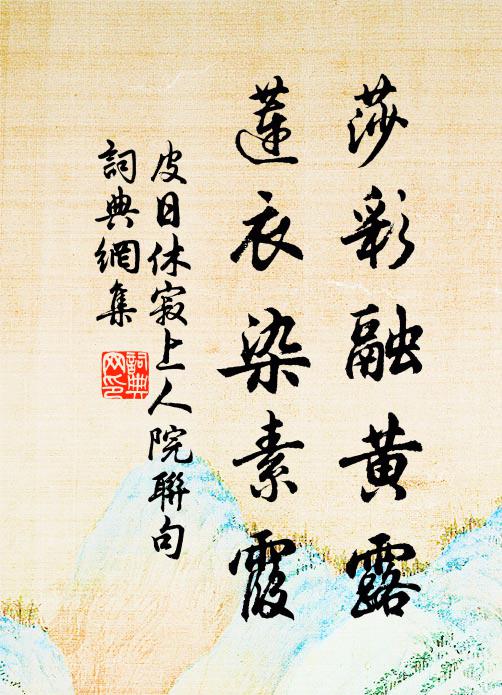 莎彩融黄露
蓮衣染素霞
皮日休寂上人院聯句
詞典網集
詞典網印